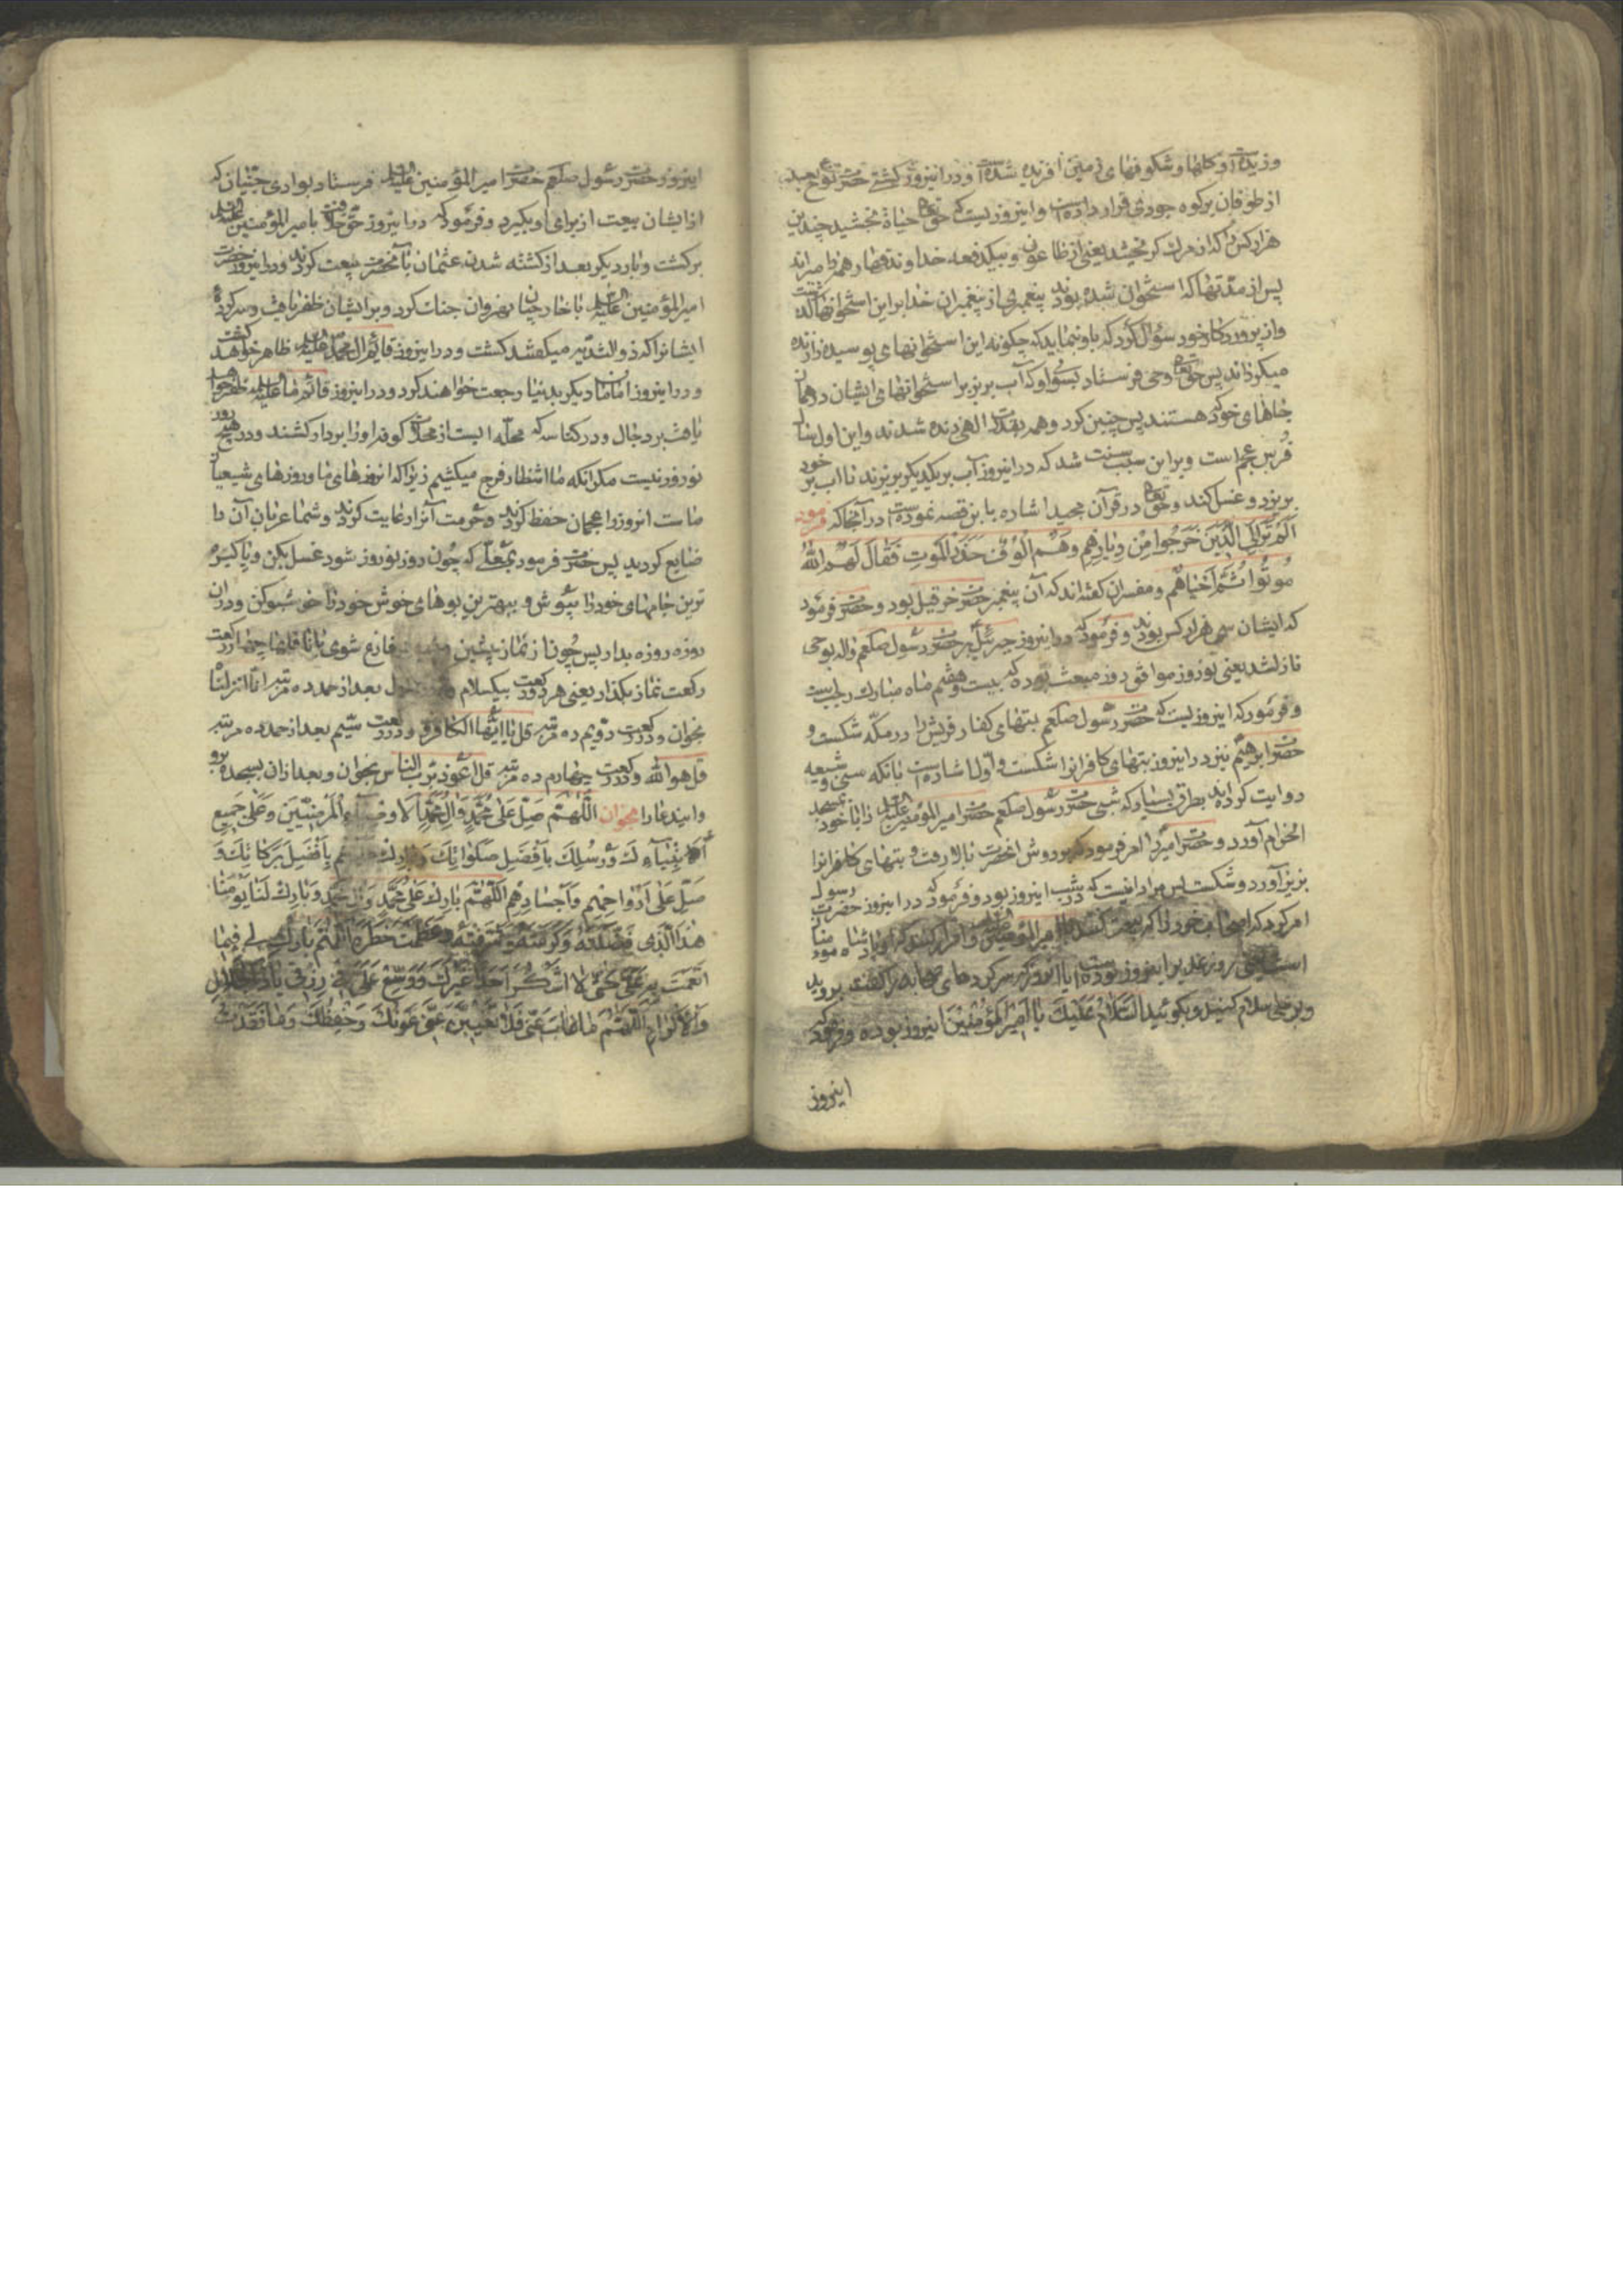 وزیده است و کلها و شکوفهای زمین افریده شده است و در اینروز کشتی حضرت نوح بعد
از طوفان بر کوه جودی قرار داده است و اینروزیست که حق تعالی حیاة بخشید چندین
هزار کس را که از مرک کریختند یعنی از طاعون و بیکدفعه خداوند قهار همه را میراند
پس از مدتها که استخوان شده بودند پیغمبری از پیغمبران خدا بر این استخوانها گذشت
و از پروردکار خود سؤال کرد که باو بنماید که چکونه این استخوانهای پوسیده را زنده
میکرداند پس حق تعالی وحی فرستاد بسوی او که آب بریز بر استخوانهای ایشان در همان
جاهای خود که هستند پس چنین کرد و همه بقدرت الهی زنده شدند و این اول سال
فرس عجم است و بر این سبب سنت شد که در اینروز آب بر یکدیکر بریزند یا آب بر خود
بریزد و غسل کند و حق تعالی در قرآن مجید اشاره باین قصه نموده است در آنجا که فرموده
اَلَمْ تَرَ اِلَی الَّذینَ خَرَجُوا مِنْ دِیارِهِم وَهُم اُلُوفٌ حَذَرَ الْمَوتِ فَقالَ لَهُم اللهُ
مُوتُوا ثُمَّ اَحْیاهُم و مفسران کفته‌اند که آن پیغمبر حضرت حزقیل بود و حضرت فرمود
که ایشان سی هزار کس بودند و فرمود که در اینروز جبرئیل بر حضرت رسول صلعم واله بوحی
نازلشد یعنی نوروز موافق روز مبعث بوده که بیست و هفتم ماه مبارک رجب است
و فرمود که اینروزیست که حضرت رسول صلعم بتهای کفار قریش را در مکه شکست و
حضرت ابرهیم نیز در اینروز بتهای کافرانرا شکست و اول اشاره است بانکه سنی و شیعه
روایت کرده‌اند بطرق بسیار که شبی حضرت رسول صلعم حضرت امیرالمؤمنین علیه السلام را با خود بمسجد
الحرام آورد و حضرت امیر را امر فرمود که بر دوش انحضرت بالا رفت و بتهای کافرانرا
بزیر آورد و شکست پس مراد اینست که در شب اینروز بود و فرمود که در اینروز حضرت رسول
امر کرد که اصحاب خود را که بیعت کنند با امیرالمؤمنین و اقرار کنند که او پادشاه مومنان
است یعنی روز غدیر اینروز بوده است یا انروز که سرکردهای صحابه را کفت بروید
و بر علی سلام کنید و بکوئید السَّلامُ عَلَیْكَ یا اَمیرَ الْمُؤمِنینَ اینروز بوده و فرمود که
اینروز
اینروز حضرت رسول صلعم حضرت امیر المؤمنین علیه السلام فرستاد بوادی جنیان که
از ایشان بیعت از برای او بکیرد و فرمود که در اینروز حق خلافت بامیر المؤمنین علیه السلام
برکشت و بار دیکر بعد از کشته شدن عثمان با آنحضرت بیعت کردند و در اینروز حضرت
امیر المؤمنین علیه السلام با خارجیان نهروان جنك کرد و بر ایشان ظفر یافت و سر کرده
ایشانرا که ذوالثدیه میکفتند کشت و در اینروز قائم آل محمد علیه السلام ظاهر خواهد کشت
و در اینروز امامان دیکر بدنیا رجعت خواهند کرد و در اینروز قائم ما علیه السلام ظفر خواهد
یافت بر دجال و در کناسه که محله ایست از محلات کوفه او را بر دار کشند و در هیچ روز
نوروز نیست مکر انکه ما انتظار فرج میکشیم زیرا که انروزهای ما و روزهای شیعیان
ماست انروز را عجمان حفظ کردند و حرمت آنرا رعایت کردند و شما عربان آن را
ضایع کردید پس حضرت فرمود بمعلی که چون روز نوروز شود غسل بکن و پاکیزه
ترین جامهای خود را بپوش و ببهترین بوهای خوش خود را خوشبو کن و در آن
روزه روزه بدار پس چون از نماز پیشین فارغ شوی با نافلها چهار رکعت
رکعت نماز بکذار یعنی هر دو رکعت بیکسلام بعد از حمد ده مرتبه انا انزلنا
بخوان و در رکعت دویم ده مرتبه قل یا ایها الکافرون و در رکعت سیم بعد از حمد ده مرتبه
قل هو الله و در رکعت چهارم ده مرتبه قل اعوذ برب الناس بخوان و بعد از ان بسجده رو
و ایندعا را بخوان اَللّهُمَّ صَلِّ عَلی مُحَمَّدٍ وَالِ مُحَمَّدٍ الاَوصِیاءِ الْمَرْضِیّینَ وَعَلی جَمیعِ
اَنْبِیاءِكَ وَرُسُلِكَ بِاَفْضَلِ صَلَواتِكَ وَبارِكْ عَلَیهِم بِاَفْضَلِ بَرَکاتِكَ وَ
صَلِّ عَلی اَرْواحِهِم وَاَجْسادِهِم اَللّهُمَّ بارِكْ عَلی مُحَمَّدٍ وَالِ مُحَمَّدٍ وَبارِكْ لَنا یَوْمَنا
هذَا الَّذی فَضَّلْتَهُ وَکَرَّمْتَهُ وَشَرَّفْتَهُ وَعَظَّمْتَ خَطَرَهُ اَللّهُمَّ بارِكْ لی فیما
اَنْعَمْتَ بِهِ عَلَیَّ حَتّی لا اَشْکُرَ اَحَداً غَیْرَكَ وَوَسِّعْ عَلَیَّ فی رِزْقی یا ذَا الْجَلالِ
وَالاِکْرامِ اَللّهُمَّ ما غابَ عَنّی فَلا تُغَیِّبَنَّ عَنّی عَوْنَكَ وَحِفْظَكَ وَما فَقَدْتُ